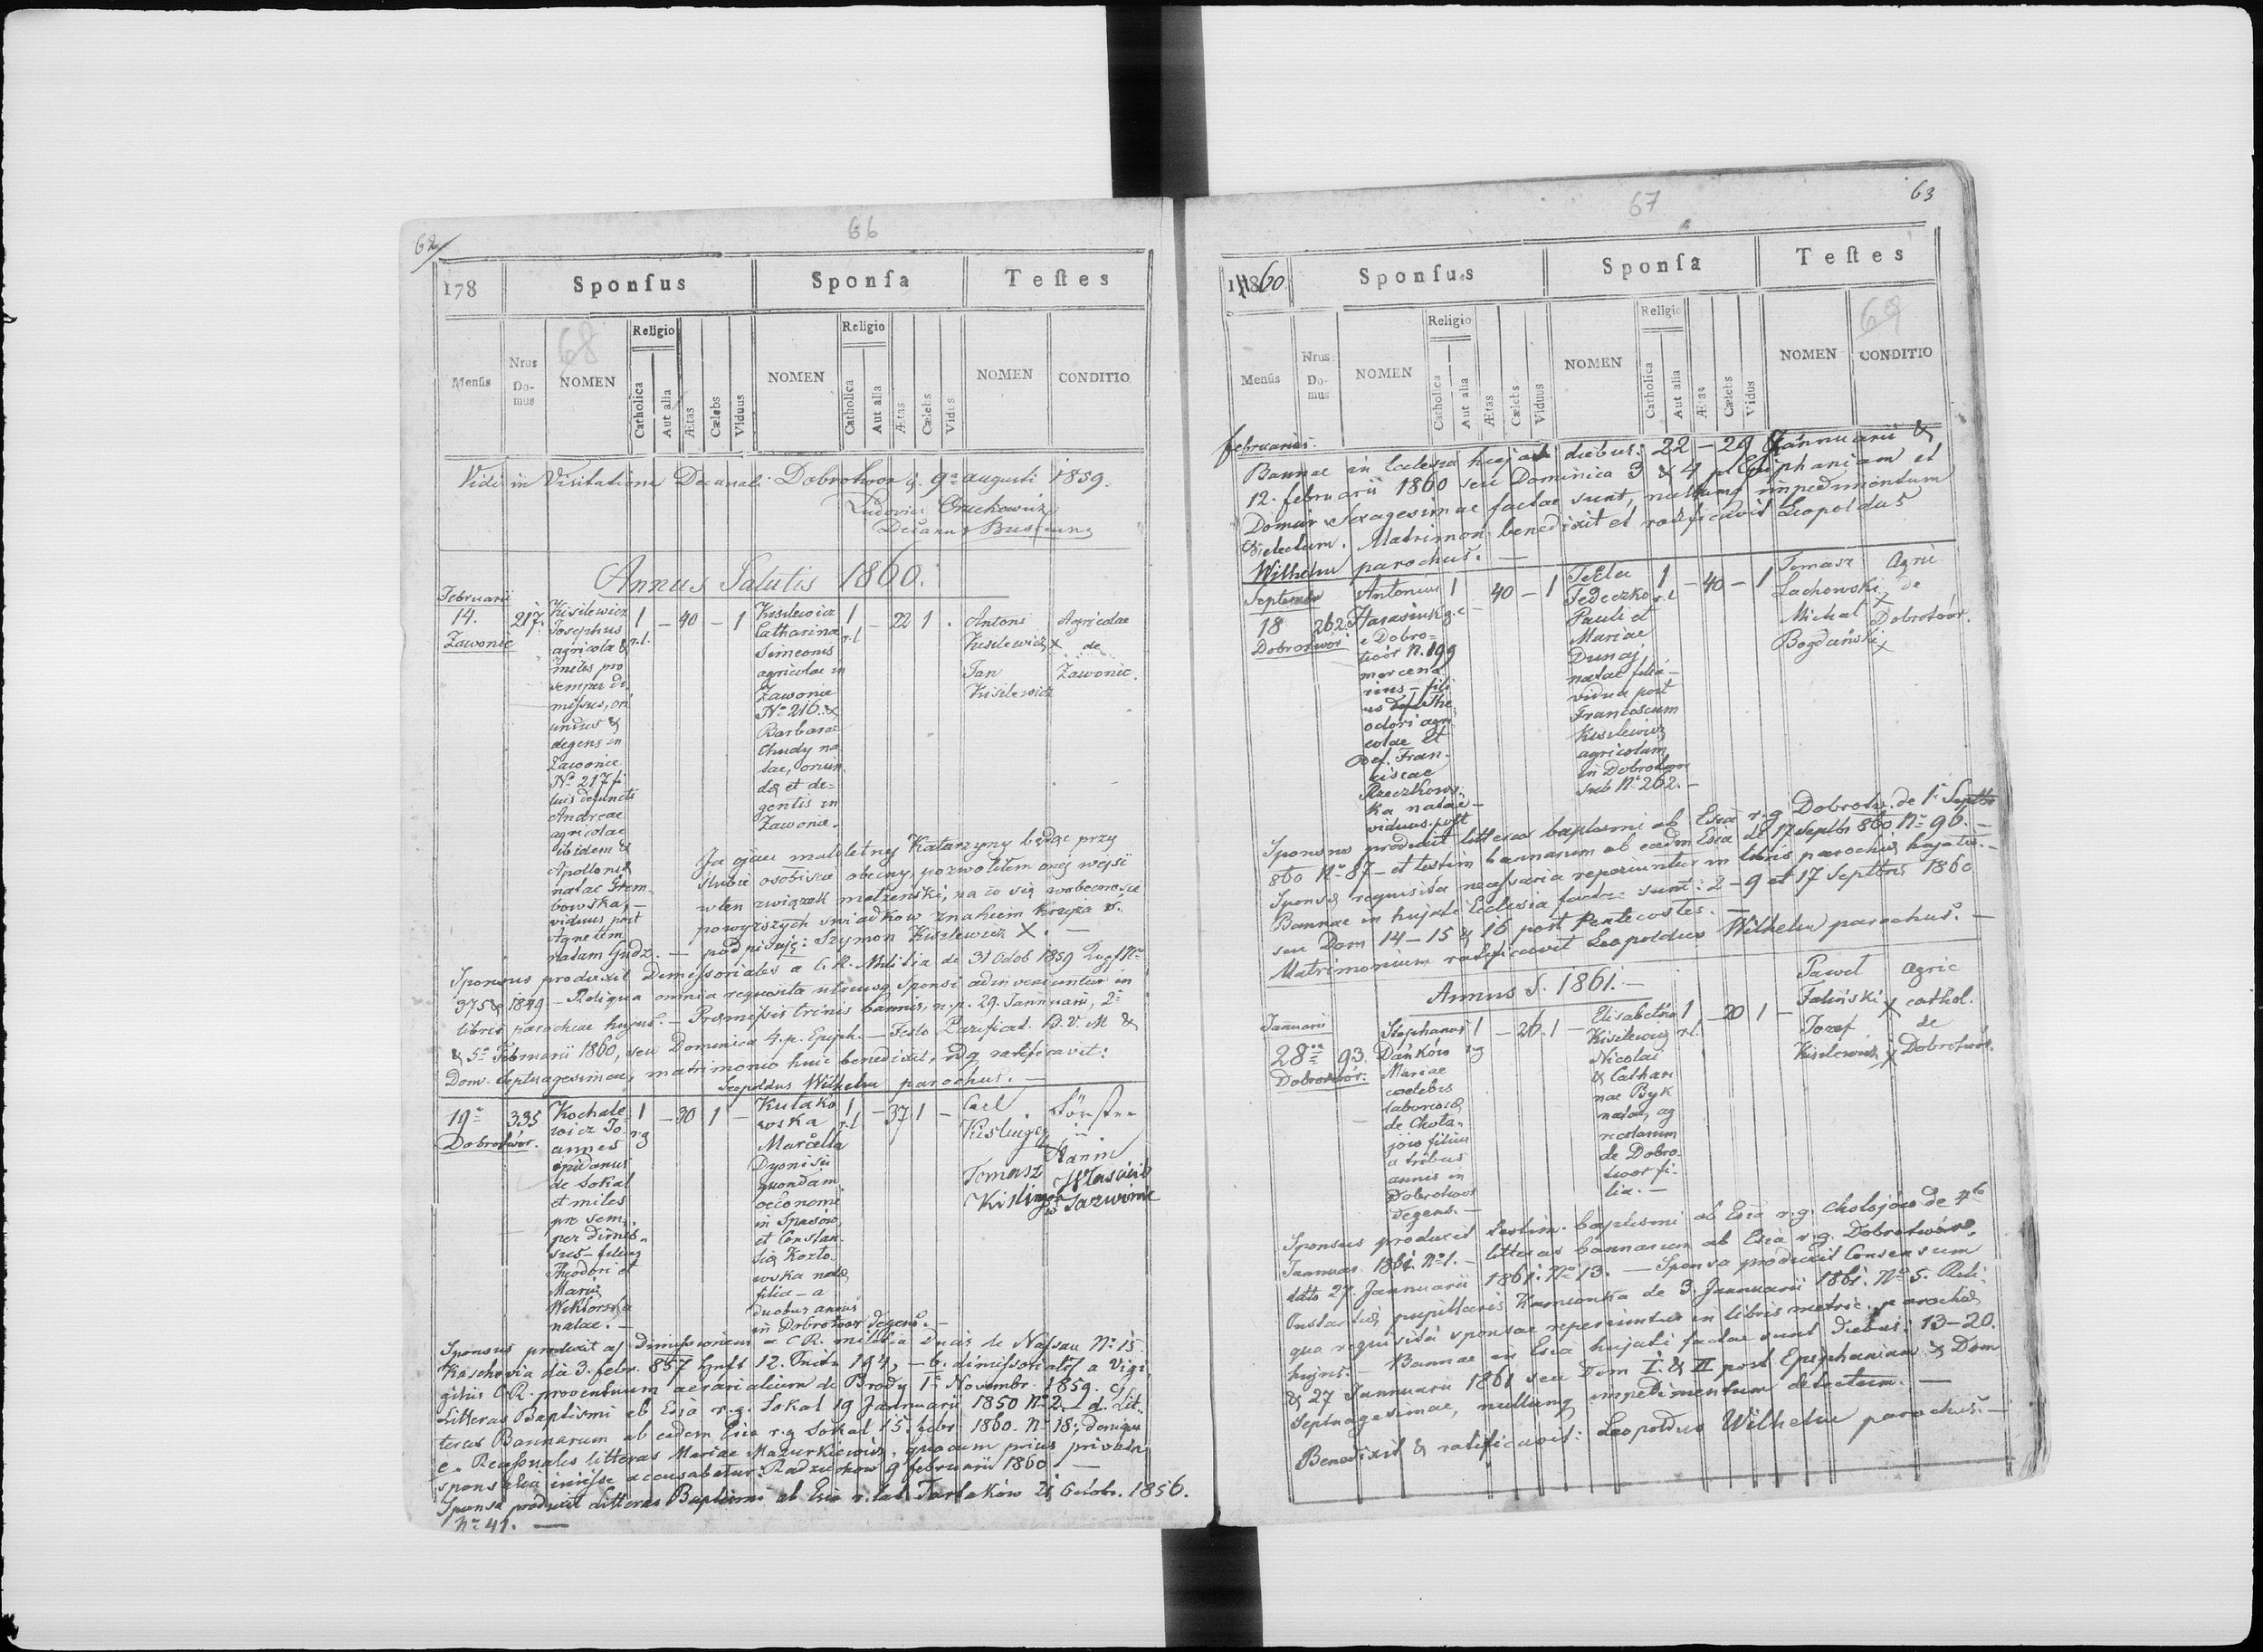 62
66
178
Sponſus
Sponſa
Teſtes
Menſis
Nrus Do-mus
68
NOMEN
Religio
Catholica
Aut alia
Ætas
Cœlebs
Viduus
NOMEN
Religio
Catholica
Aut alia
Ætas
Cœlebs
Vidus
NOMEN
CONDITIO
Vidi in Visitatione Decanali Dobrotwor 9na augusti 1859.
Annus Salutis 1860.
Februarii
14.
Zawonie
217.
Kisilewicz
Josephus
agricola &
miles pro
semper di
missus, ori
undus &
degens in
Zawonie
No 217 fi
lius defuncti
Andreae
agricolae
ibidem &
Apolloniae
natae Grem
bowska, –
viduus post
Agnetem
natam Gudz. –
1
r.l.
– 40 – 1
Kisilewicz
Catharina
Simeonis
agricolae in
Zawonie
No 216. &
Barbarae
Chudy na
tae, oriun
da et de=
gentis in
Zawonie.
1
r.l
– 22 1 .
Antoni
Kisilewicz x
Jan
Kisilewicz
Agricolae
de
Zawonie.
Ja ojciec małoletniej Katarzyny będąc przy
ślubie osobiście obecny, pozwoliłem onej wejść
w ten związek małżeński, na co się w obecności
powyższych świadków znakiem Krzyża Sr.
podpisuję: Szymon Kisilewicz X. –
Sponsus produxit Dimissoriales a C. R. Militia de 31 Octob 1859
975 & 1849 – Reliqua omnia requisita utriusq sponsi adinveniuntur in
libris parochiae hujus. – Praemissis trinis bannis, n.p. 29. Jannuarii, 2a
& 5a Februarii 1860, seu Dominica 4. p. Epiph. – Festo Purificat. B. V. M &
Dom. Septuagesimae, matrimonio huic benedixit, idq ratificavit:
Leopoldus Wilhelm parochus. –
19a
Dobrotwór.
335
Kochale
wicz Jo
annes
opidanus
de Sokal
et miles
pro sem
per dimis
sus – filius
Theodori et
Mariae
Wiktorska
natae. –
1
r.g
– 30 1 –
Kulako
wska
Marcella
Dyonisii
quondam
oeconomi
in Spasów
et Constan
tiae Kozło
wska natae
filia – a
duobus annis
in Dobrotwor degens. –
1
r.l
– 37 1 –
Carl
Kislinger
Tomasz
Kislinger
Förster
Właściciel
Sponsus produxit a) Dimissoriam a C R. militia Ducis de Nassau No 15
Kaschovia da 3. febr. 857 – b. dimissoriales a Vigi
giliis C R. proventuum aerarialium de Brody 1a Novembr. 1859. c)
Litteras Baptismi ab Esia r.g. Sokal 19 Jannuarii 1850 No 2 – d. Lit
teras Bannarum ab eadem Esia r.g Sokal 15. febr. 1860. No 18; denique
e. Recessuales litteras Mariae Mazurkiewicz, quacum prius privata
sponsalia inivisse accusabatur. Radziechow 9 februarii 1860 –
Sponsa produxit litteras Baptismi ab Esia r. lat. Tartaków 21 Octobr. 1856.
No 41. –
67
63
1860
Sponſus
Sponſa
Teſtes
Menſis
Nrus Do-mus
NOMEN
Religio
Catholica
Aut alia
Ætas
Cœlebs
Viduus
NOMEN
Religio
Catholica
Aut alia
Ætas
Cœlebs
Vidus
69
NOMEN
CONDITIO
februarius.
Bannae in Eclesia hujati diebus: 22 – 29 Jannuarii &
12. februarii 1860 seu Dominica 3 & 4 p. Epiphaniam et
Domin. Sexagesimae factae sunt, nullumq impedimentum
detectum. Matrimon. benedixit et ratificavit Leopoldus
Wilhelm parochus. –
September
18
Dobrotwór
262.
Antonius
Harasiuk
e Dobro=
twór N. 199
mercena
rius – fili
us def. The
odori agri
colae et
def. Fran
ciscae
Rzeczkows
ka natae –
viduus post
1
g.c
– 40 – 1
Tecla
Fedeczko
Pauli et
Mariae
Dunaj
natae filia –
vidua post
Franciscum
Kisilewicz
agricolam
in Dobrotwor
sub No 262. –
1
r.l
– 40 – 1
Tomasz
Lachowski x
Michał
Bogdański x
Agric
de
Dobrotwór.
Sponsus produxit litteras baptismi ab Esia r.g Dobrotw. de 1. Septbr
860 No 87 – et testim bannarum ab eadem Esia de 17 Septbr 860 No 90. –
Sponsae requisita necessaria reperiuntur in libris parochiae hujatis. –
Bannae in hujati Ecclesia factae sunt: 2 – 9 et 17 Septbris 1860
seu Dom 14 – 15 & 16 post Pentecostes. –
Matrimonium ratificavit Leopoldus Wilhelm parochus. –
Annus S. 1861. –
Januarii
28va
Dobrotwór.
93.
Stephanus
Dańków
Mariae
coelebis
laboriosae
de Choła
jow filius
a tribus
annis in
Dobrotwor
degens. –
1
r.g
– 26. 1 –
Elisabetha
Kisilewicz
Nicolai
& Cathari
nae Byk
natae, ag
ricolarum
de Dobro
twor fi
lia. –
1
r.l.
– 20 1 –
Paweł
Faliński x
Jozef
Kisilewicz x
Agric
cathol.
de
Dobrotwór.
Sponsus produxit testim. baptismi ab Esia r.g. Cholojów de 4ta
Jannuar 1861. No 1. – litteras bannarum ab Esia r.g. Dobrotwór
dato 27. Jannuarii 1861. No 13. – Sponsa produxit Consensum
Instantiae pupillaris Kamionka de 3. Jannuarii 1861. No 5. Reli
qua requisita sponsae reperiuntur in libris metric. parochiae
hujus. Bannae in Esia hujati factae sunt diebus: 13 – 20.
& 27 Jannuarii 1861 seu Dom I. & II post Epiphaniam & Dom
Septuagesimae, nullumq impedimentum detectum. –
Benedixit & ratificavit: Leopoldus Wilhelm parochus. –